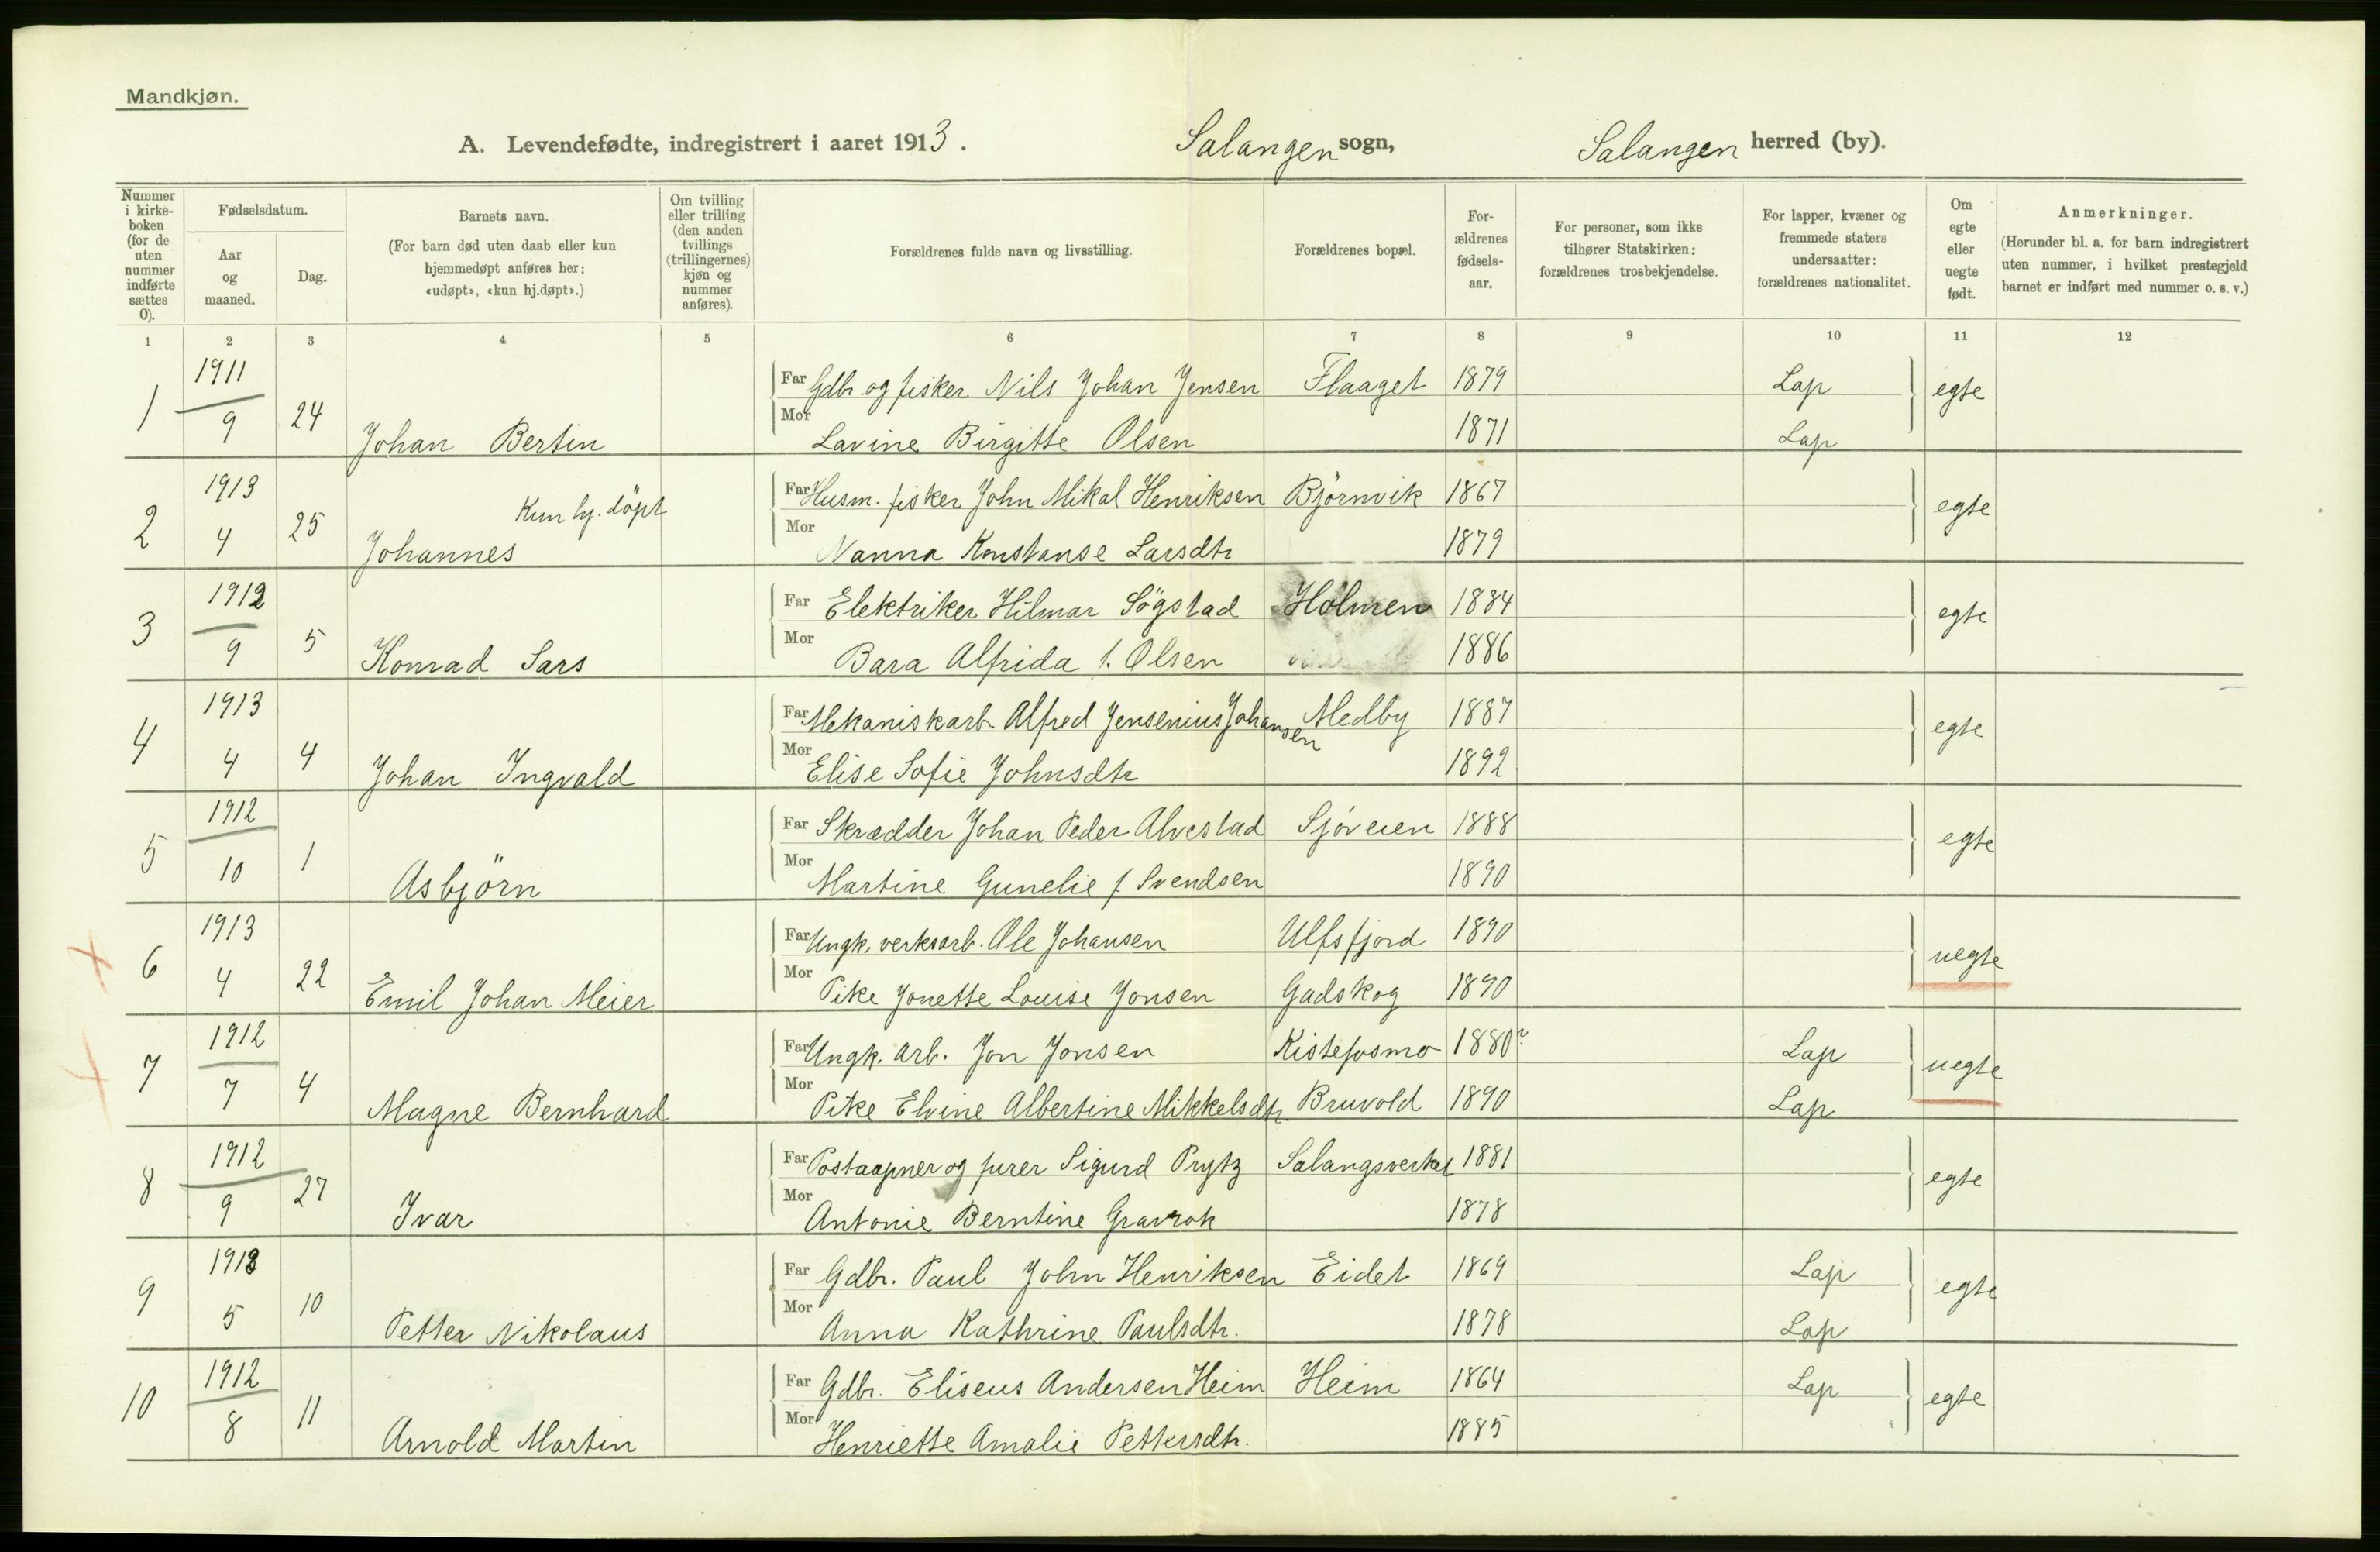 Mandkjøn.
A. Levendefødte, indregistrert i aaret 1913. Salangen sogn, Salangen herred (by).
Nummer i kirke-boken (for de uten nummer indførte sættes 0).
Fødselsdatum.
Aar og maaned.
Dag.
Barnets navn.
(For barn død uten daab eller kun hjemmedøpt anføres her: «udøpt», «kun hj.døpt».)
Om tvilling eller trilling (den anden tvillings (trillingernes) kjøn og nummer anføres).
Forældrenes fulde navn og livsstilling.
Forældrenes bopæl.
For-ældrenes fødsels-aar.
For personer, som ikke tilhører Statskirken: forældrenes trosbekjendelse.
For lapper, kvæner og fremmede staters undersaatter: forældrenes nationalitet.
Om egte eller uegte født.
Anmerkninger.
(Herunder bl. a. for barn indregistrert uten nummer, i hvilket prestegjeld barnet er indført med nummer o. s. v.)
1 2 3 4 5 6 7 8 9 10 11 12
1 1911 9 24 Johan Bertin
Far Gdbr. og fisker Nils Johan Jensen Flaaget 1879 Lap egte
Mor Lavine Birgitte Olsen 1871 Lap
2 1913 4 25 Johannes Kun hj. döpt
Far Husm. fisker John Mikal Henriksen Björnvik 1867 egte
Mor Nanna Konstanse Larsdtr 1879
3 1912 9 5 Konrad Lars
Far Elektriker Hilmar Sögstad Holmen 1884 egte
Mor Bara Alfrida f. Olsen 1886
4 1913 4 4 Johan Ingvald
Far Mekaniskarb. Alfred Jensenius Johansen Medby 1887 egte
Mor Elise Sofie Johnsdtr 1892
5 1912 10 1 Asbjörn
Far Skrædder Johan Peder Alvestad Sjöveien 1888 egte
Mor Martine Gunelie f Svendsen 1890
6 1913 4 22 Emil Johan Meier
Far Ungk. verksarb. Ole Johansen Ulfsfjord 1890 uegte
Mor Pike Jonette Louise Jonsen Gadskog 1890
7 1912 7 4 Magne Bernhard
Far Ungk. arb. Jon Jonsen Kistefosmo 1880? Lap uegte
Mor Pike Elvine Albertine Mikkelsdtr. Bruvold 1890 Lap
8 1912 9 27 Ivar
Far Postaapner og furer Sigurd Prytz Salangsverket 1881 egte
Mor Antonie Berntine Gravrok 1878
9 1913 5 10 Petter Nikolaus
Far Gdbr. Paul John Henriksen Eidet 1869 Lap egte
Mor Anna Kathrine Paulsdtr. 1878 Lap
10 1912 8 11 Arnold Martin
Far Gdbr. Eliseus Andersen Heim Heim 1864 Lap egte
Mor Henriette Amalie Pettersdtr. 1885